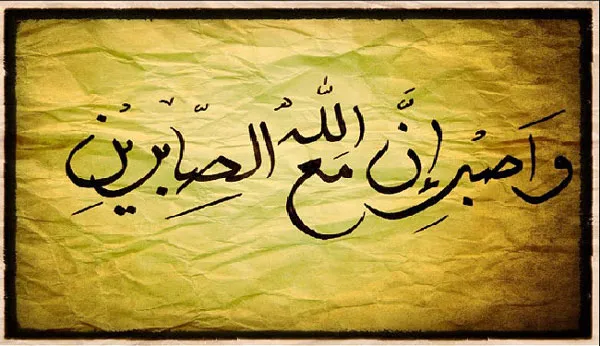 وَاصْبِر إِنَّ اللّٰهُ مَعَ الصِّابِرِيْنِ